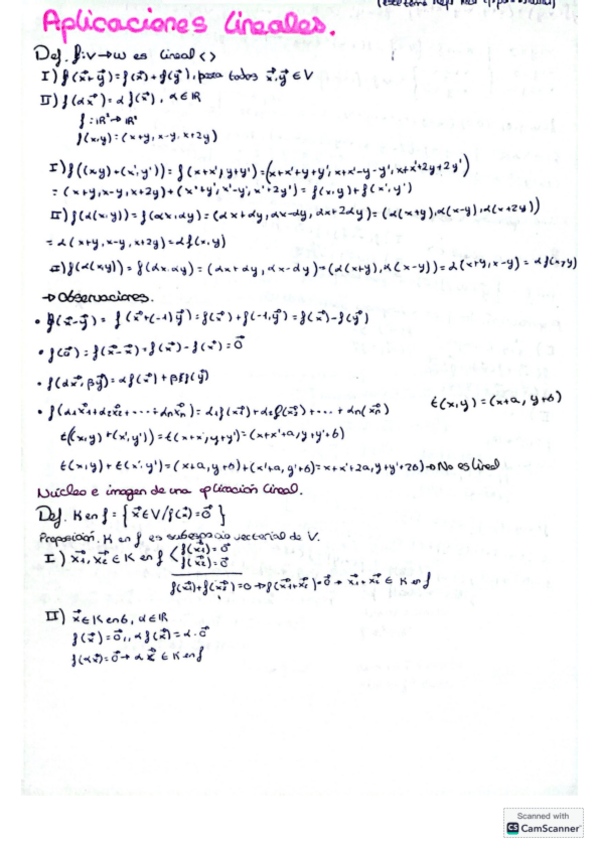 Aplicaciones lineales.
Def. f: V → W es lineal <>
I) f(x⃗+y⃗) = f(x⃗) + f(y⃗), para todos x⃗,y⃗ ∈ V
II) f(αx⃗) = α f(x⃗), α ∈ ℝ
f(x,y) = (x+y, x-y, x+2y)
I) f((x,y)+(x',y')) = f(x+x', y+y') = (x+x'+y+y', x+x'-y-y', x+x'+2y+2y')
= (x+y, x-y, x+2y) + (x'+y', x'-y', x'+2y') = f(x,y) + f(x',y')
II) f(α(x,y)) = f(αx,αy) = (αx+αy, αx-αy, αx+2αy) = (α(x+y), α(x-y), α(x+2y))
= α(x+y, x-y, x+2y) = α f(x,y)
II) f(α(x,y)) = f(αx,αy) = (αx+αy, αx-αy) = (α(x+y), α(x-y)) = α(x+y, x-y) = α f(x,y)
→ Observaciones.
• f(x⃗-y⃗) = f(x⃗+(-1)y⃗) = f(x⃗) + f(-1y⃗) = f(x⃗) - f(y⃗)
• f(0⃗) = f(x⃗-x⃗) = f(x⃗) - f(x⃗) = 0⃗
• f(αx⃗, βy⃗) = αf(x⃗) + βf(y⃗)
• f(α1x⃗1+α2x⃗2+ ... +αnx⃗n) = α1f(x⃗1)+α2f(x⃗2)+ ... + αn(x⃗n) t(x,y) = (x+a, y+b)
t((x,y)+(x',y')) = t(x+x', y+y') = (x+x'+a, y+y'+b)
t(x,y) + t(x',y') = (x+a, y+b) + (x'+a, y'+b) = x+x'+2a, y+y'+2b) → No es lineal
Núcleo e imagen de una aplicación lineal.
Def. Ken f = {x⃗∈V / f(x⃗) = 0⃗}
Proposición. Ken f es subespacio vectorial de V.
I) x⃗1, x⃗2 ∈ Ken f < f(x⃗1) = 0⃗
f(x⃗2) = 0⃗
f(x⃗1)+f(x⃗2) = 0 → f(x⃗1+x⃗2) = 0⃗ → x⃗1+x⃗2 ∈ Ken f
II) x⃗ ∈ Ken f, α ∈ ℝ
f(x⃗) = 0⃗, α f(x⃗) = α·0⃗
f(αx⃗) = 0⃗ → αx⃗ ∈ Ken f
Scanned with
CS CamScanner